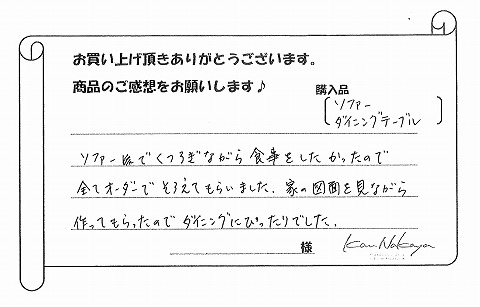 お買い上げ頂きありがとうございます。
商品のご感想をお願いします♪
購入品
ソファー
ダイニングテーブル
ソファー席でくつろぎながら食事をしたかったので
全てオーダーでそろえてもらいました。家の図面を見ながら
作ってもらったのでダイニングにぴったりでした。
様